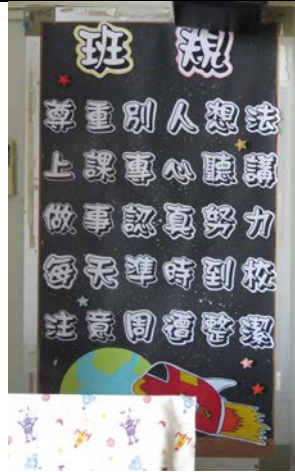 班規
尊重別人想法
上課專心聽講
做事認真努力
每天準時到校
注意周遭整潔